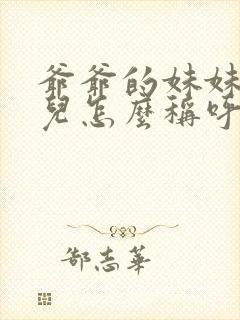 爺爺的妹妹
兒怎麼稱呼
郜志華